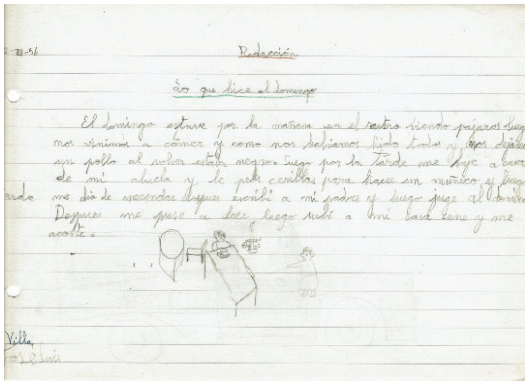 Redacción
Lo que hice el domingo
El domingo estuve por la mañana en el rastro viendo pájaros luego
nos vinimos a cómer y como nos habiamos ido todos y nos dejamos
un pollo al volver estaba negro. Luego por la tarde me baje a casa
de mi abuela y le pedi cerillas para hacer un muñeco y luego
me dio de merendar despues escribí a mi padre y luego juge al
Despues me puse a leer luego subí a mi casa cene y me
acoste.
Villa,